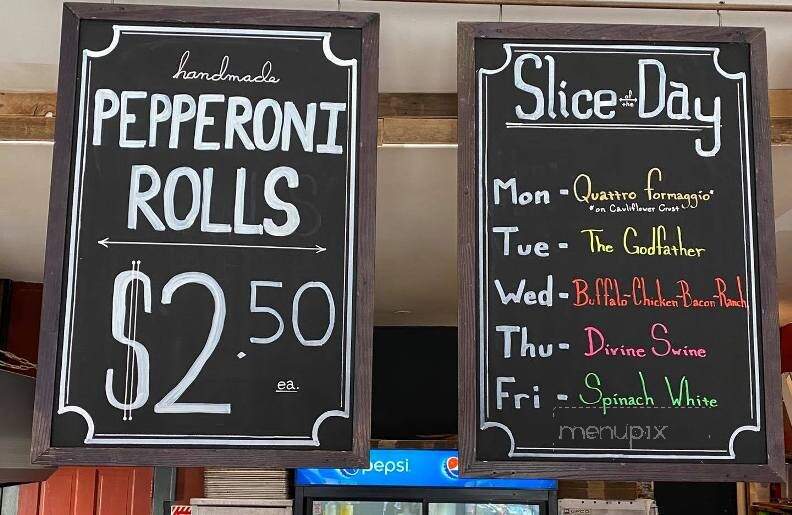 handmade
PEPPERONI
ROLLS
$2.50
ea.
Slice of the Day
Mon - Quattro formaggio*
*on Cauliflower Crust
Tue - The Godfather
Wed - Buffalo-Chicken-Bacon-Ranch
Thu - Divine Swine
Fri - Spinach White
menupix
pepsi